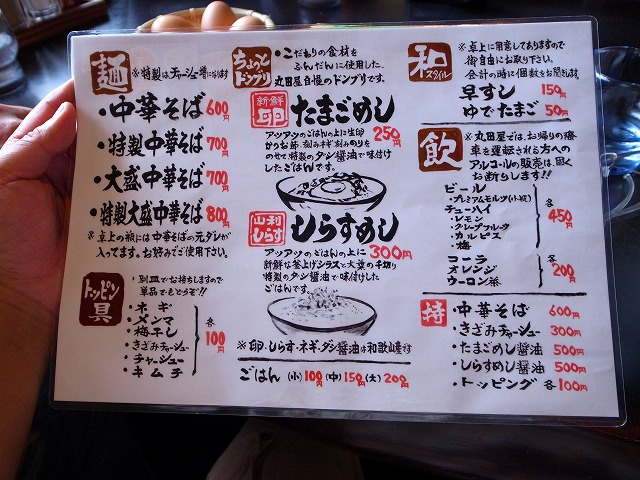 麺
※特製はチャーシュー増になります
・中華そば 600円
・特製中華そば 700円
・大盛中華そば 700円
・特製大盛中華そば 800円
※卓上の瓶には中華そばの元ダレが
入ってます。お好みでご使用下さい。
トッピン具
・別皿でお持ちしますので
単品でもどうぞ!!
・ネギ
・メンマ
・梅干し
・きざみチャーシュー
・チャーシュー
・キムチ
各100円
ちょっとドンブリ
・こだわりの食材を
ふんだんに使用した、
丸田屋自慢のドンブリです。
新鮮卵
たまごめし
250円
アツアツのごはんの上に生卵
かつお節、刻みネギ、刻みのりを
のせて特製のダシ醤油で味付け
したごはんです。
山利しらす
しらすめし
300円
アツアツのごはんの上に
新鮮な釜上げシラスと大葉の千切り
特製のダシ醤油で味付けした
ごはんです。
※卵・しらす・ネギ・ダシ醤油は和歌山産です
ごはん (小)100円 (中)150円 (大)200円
和スタイル
※卓上に用意しておりますので
御自由にお取り下さい。
会計の時に個数をお聞きします。
早すし 150円
ゆでたまご 50円
飲
※丸田屋では、お帰りの際
車を運転される方への
アルコールの販売は、固く
お断りします!!
ビール
・プレミアムモルツ(小瓶)
チューハイ
・レモン
・グレープフルーツ
・カルピス
・梅
各450円
コーラ
オレンジ
ウーロン茶
各200円
持
・中華そば 600円
・きざみチャーシュー 300円
・たまごめし醤油 500円
・しらすめし醤油 500円
・トッピング 各100円